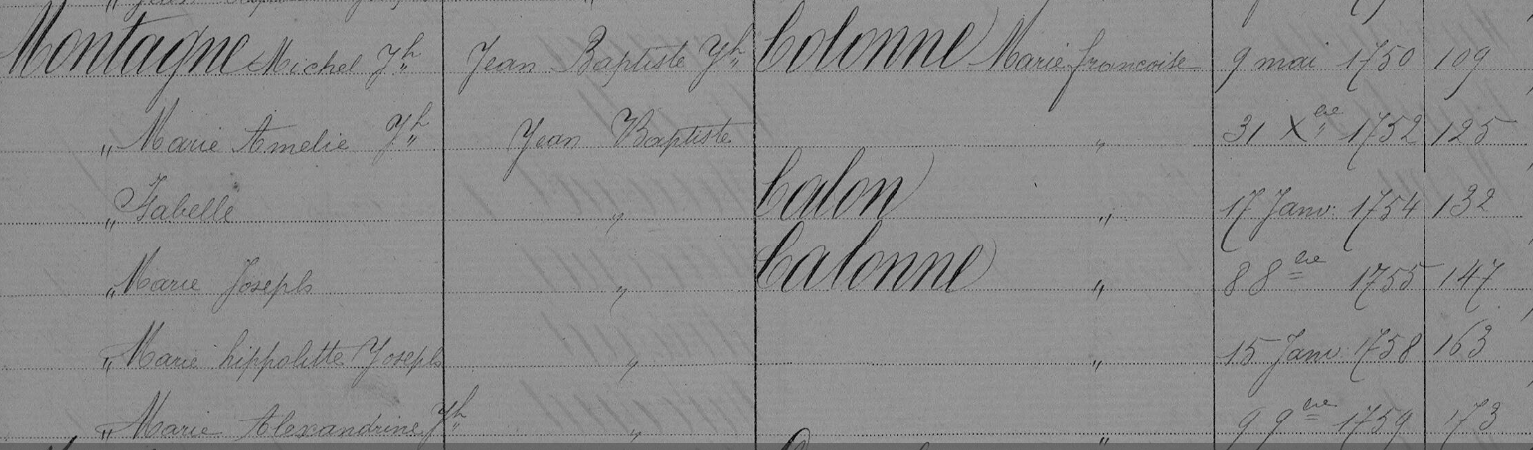 Montagne Michel Jh Jean Baptiste Jh Colonne Marie francoise 9 mai 1750 109
" Marie Amelie Jh Jean Baptiste " 31 Xbre 1752 125
" Isabelle " Calon " 17 Janv. 1754 132
" Marie Joseph " Calonne " 8 8bre 1755 147
" Marie hippolitte Joseph " " 15 Janv 1758 163
" Marie Alexandrine Jh " " 9 9bre 1759 173